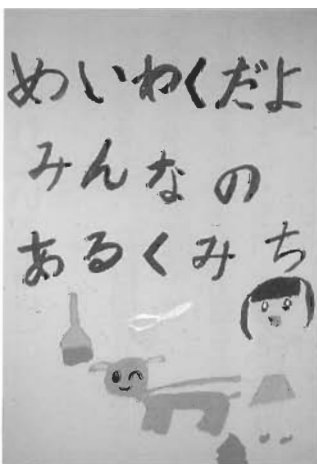 めいわくだよ
みんなの
あるくみち